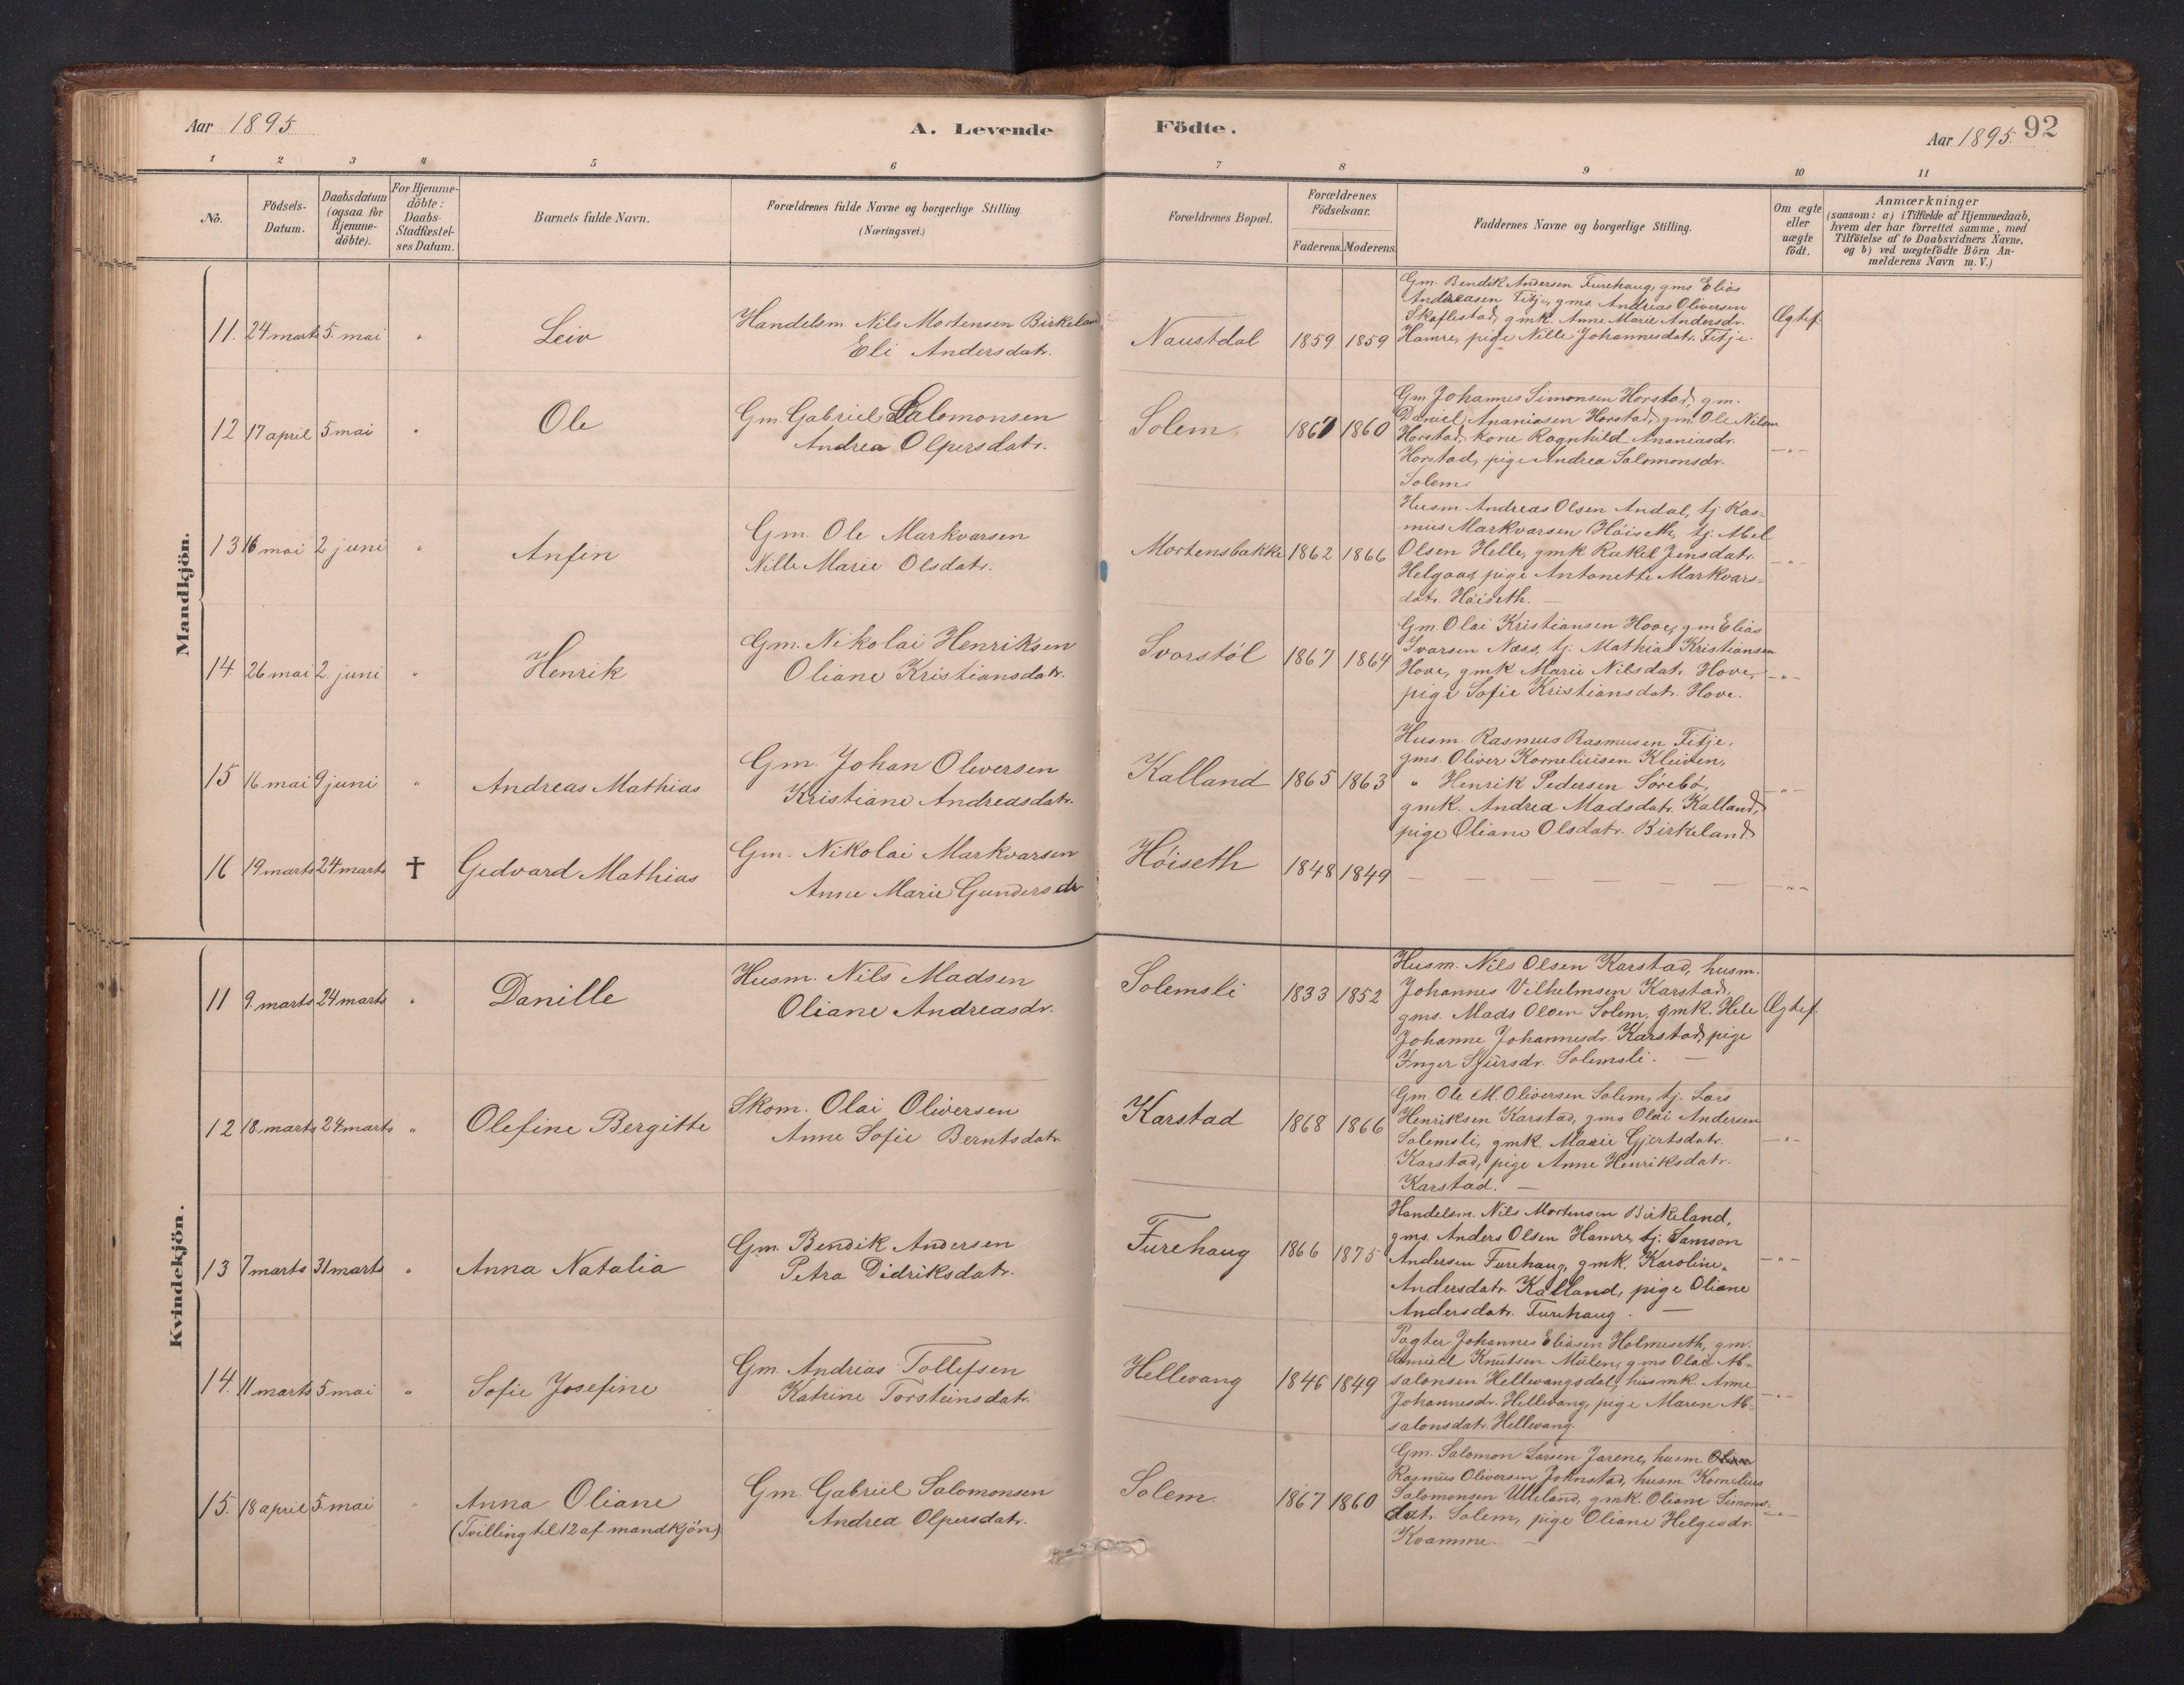 Aar 1895
A. Levende
Födte.
Aar 1895.
92
1
2
3
4
5
6
7
8
9
10
11
No.
Födsels-
Datum.
Daabsdatum
(ogsaa for
Hjemme-
döbte).
For Hjemme-
döbte:
Daabs-
Stadfæstel-
ses Datum.
Barnets fulde Navn.
Forældrenes fulde Navne og borgerlige Stilling
(Næringsvei.)
Forældrenes Bopæl.
Forældrenes
Födselsaar.
Faderens. Moderens.
Faddernes Navne og borgerlige Stilling.
Om ægte
eller
uægte
födt.
Anmærkninger
(saasom: a) i Tilfælde af Hjemmedaab,
hvem der har forrettet samme, med
Tilföielse af to Daabsvidners Navne.
og b) ved uægtefödte Börn An-
melderens Navn m. V.)
Mandkjön.
11. 24 marts 5. mai " Leiv
Handelsm. Nils Mortensen Birkeland
Eli Andersdatr.
Naustdal 1859 1859
Gm. Bendik Andersen Furehaug, gms. Elias
Andreasen Fitje, gms. Andreas Oliversen
Skaflestad, gmk. Anne Marie Andersdr.
Hamre, pige Nille Johannesdatr. Fitje.
Ægtef.
12 17 april 5 mai " Ole
Gm. Gabriel Salomonsen
Andrea Olpersdatr.
Solem. 1867 1860
Gm. Johannes Simonsen Horstad, gm.
Daniel Ananiasen Horstad, gm. Ole Nilsen
Horstad, kone Ragnhild Ananiasdr.
Horstad, pige Andrea Salomonsdr.
Solem.
—"—
13 16 mai 2 juni " Anfin
Gm. Ole Markvarsen
Nille Marie Olsdatr.
Mortensbakke 1862 1866
Husm. Andreas Olsen Andal, tj. Ras-
mus Markvarsen Höiseth, tj. Abel
Olsen Helle, gmk Rakel Jensdatr.
Helgaas, pige Antonette Markvars-
datr. Höiseth. —
—"—
14. 26 mai 2. juni " Henrik
Gm. Nikolai Henriksen
Oliane Kristiansdatr.
Svorstöl 1867 1864
Gm. Olai Kristiansen Hove, gm Elias
Ivarsen Næss, tj. Mathias Kristiansen
Hove, gmk Marie Nilsdatr. Hove,
pige Sofie Kristiansdatr. Hove.
—"—
15 16 mai 9 juni " Andreas Mathias
Gm. Johan Oliversen
Kristiane Andreasdatr.
Kalland 1865 1863
Husm. Rasmus Rasmusen Fitje,
gms. Oliver Korneliusen Kleiven,
" Henrik Pedersen Sörebö,
gmk. Andrea Madsdatr. Kalland,
pige Oliane Olsdatr. Birkeland
—"—
16 19 marts 24 marts † Gedvard Mathias
Gm. Nikolai Markvarsen
Anne Marie Gundersdr
Höiseth 1848 1849 — — — — — —
—"—
Kvindekjön.
11 9. marts 24 marts " Danille
Husm. Nils Madsen
Oliane Andreasdr.
Solemsli 1833 1852
Husm. Nils Olsen Karstad, husm.
Johannes Vilhelmsen Karstad,
gms. Mads Olsen Solem, gmk. Hele
Johanne Johannesdr. Karstad, pige
Inger Sjursdr. Solemsli. —
Ægtef.
12 18 marts 24 marts " Olefine Bergitte
Skom. Olai Oliversen
Anne Sofie Berntsdatr.
Karstad 1868 1866
Gm. Ole M. Oliversen Solem, tj. Lars
Henriksen Karstad, gms Olai Andersen
Solemsli, gmk. Marie Gjertsdatr.
Karstad, pige Anne Henriksdatr.
Karstad. —
—"—
13 7 marts 31 marts " Anna Natalia
Gm. Bendik Andersen
Petra Didriksdatr.
Furehaug 1866 1875
Handelsm. Nils Mortensen Birkeland,
gms. Anders Olsen Hamre, tj. Samson
Andersen Furehaug, gmk. Karoline
Andersdatr. Kalland, pige Oliane
Andersdatr. Furehaug. —
—"—
14. 11 marts 5 mai " Sofie Josefine
Gm. Andreas Tollefsen
Katrine Torsteinsdatr.
Hellevang 1846 1849
Pagter Johannes Eliasen Holmeseth, gm.
Samuel Knutsen Mulen, gms Olai Ab-
salonsen Hellevangsdal, husmk. Anne
Johannesdr. Hellevang, pige Maren Ab-
salonsdatr. Hellevang.
—"—
15. 18 april 5 mai " Anna Oliane
(Tvilling til 12 af mandkjön)
Gm. Gabriel Salomonsen
Andrea Olpersdatr.
Solem. 1867 1860
Gm. Salomon Larsen Jarene, husm.
Rasmus Oliversen Johnstad, husm Kornelius
Salomonsen Ulleland, gmk. Oliane Simons-
datr. Solem, pige Oliane Helgesdr.
Kvamme. —
—"—